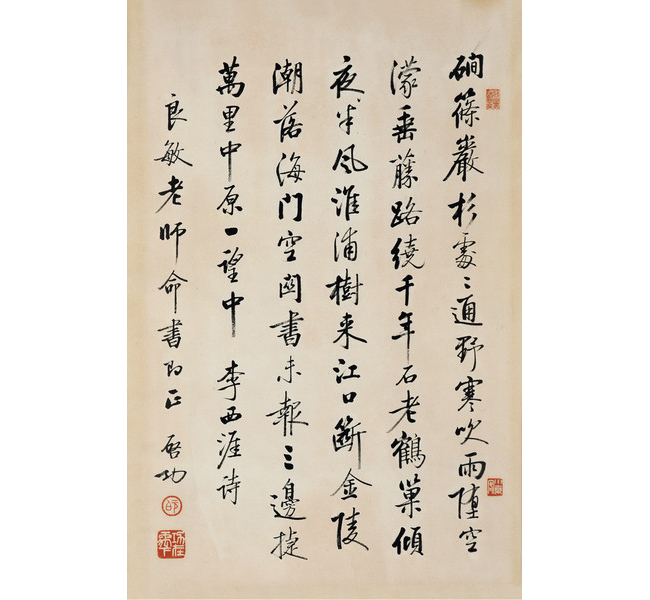 磵篠巖杉處〻通野寒吹雨墮空
濛垂藤路繞千年石老鶴巢傾
夜半風淮浦樹来江口斷金陵
潮落海門空関書未報三邊捷
萬里中原一望中 李西涯诗
良敏老師命書即正 啓功